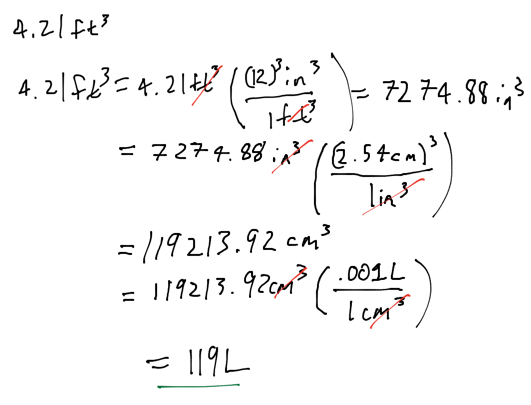 4.21ft³
4.21ft³ = 4.21ft³ ((12)³in³ / 1ft³) = 7274.88in³
= 7274.88in³ ((2.54cm)³ / 1in³)
= 119213.92 cm³
= 119213.92cm³ (.001L / 1cm³)
= 119L